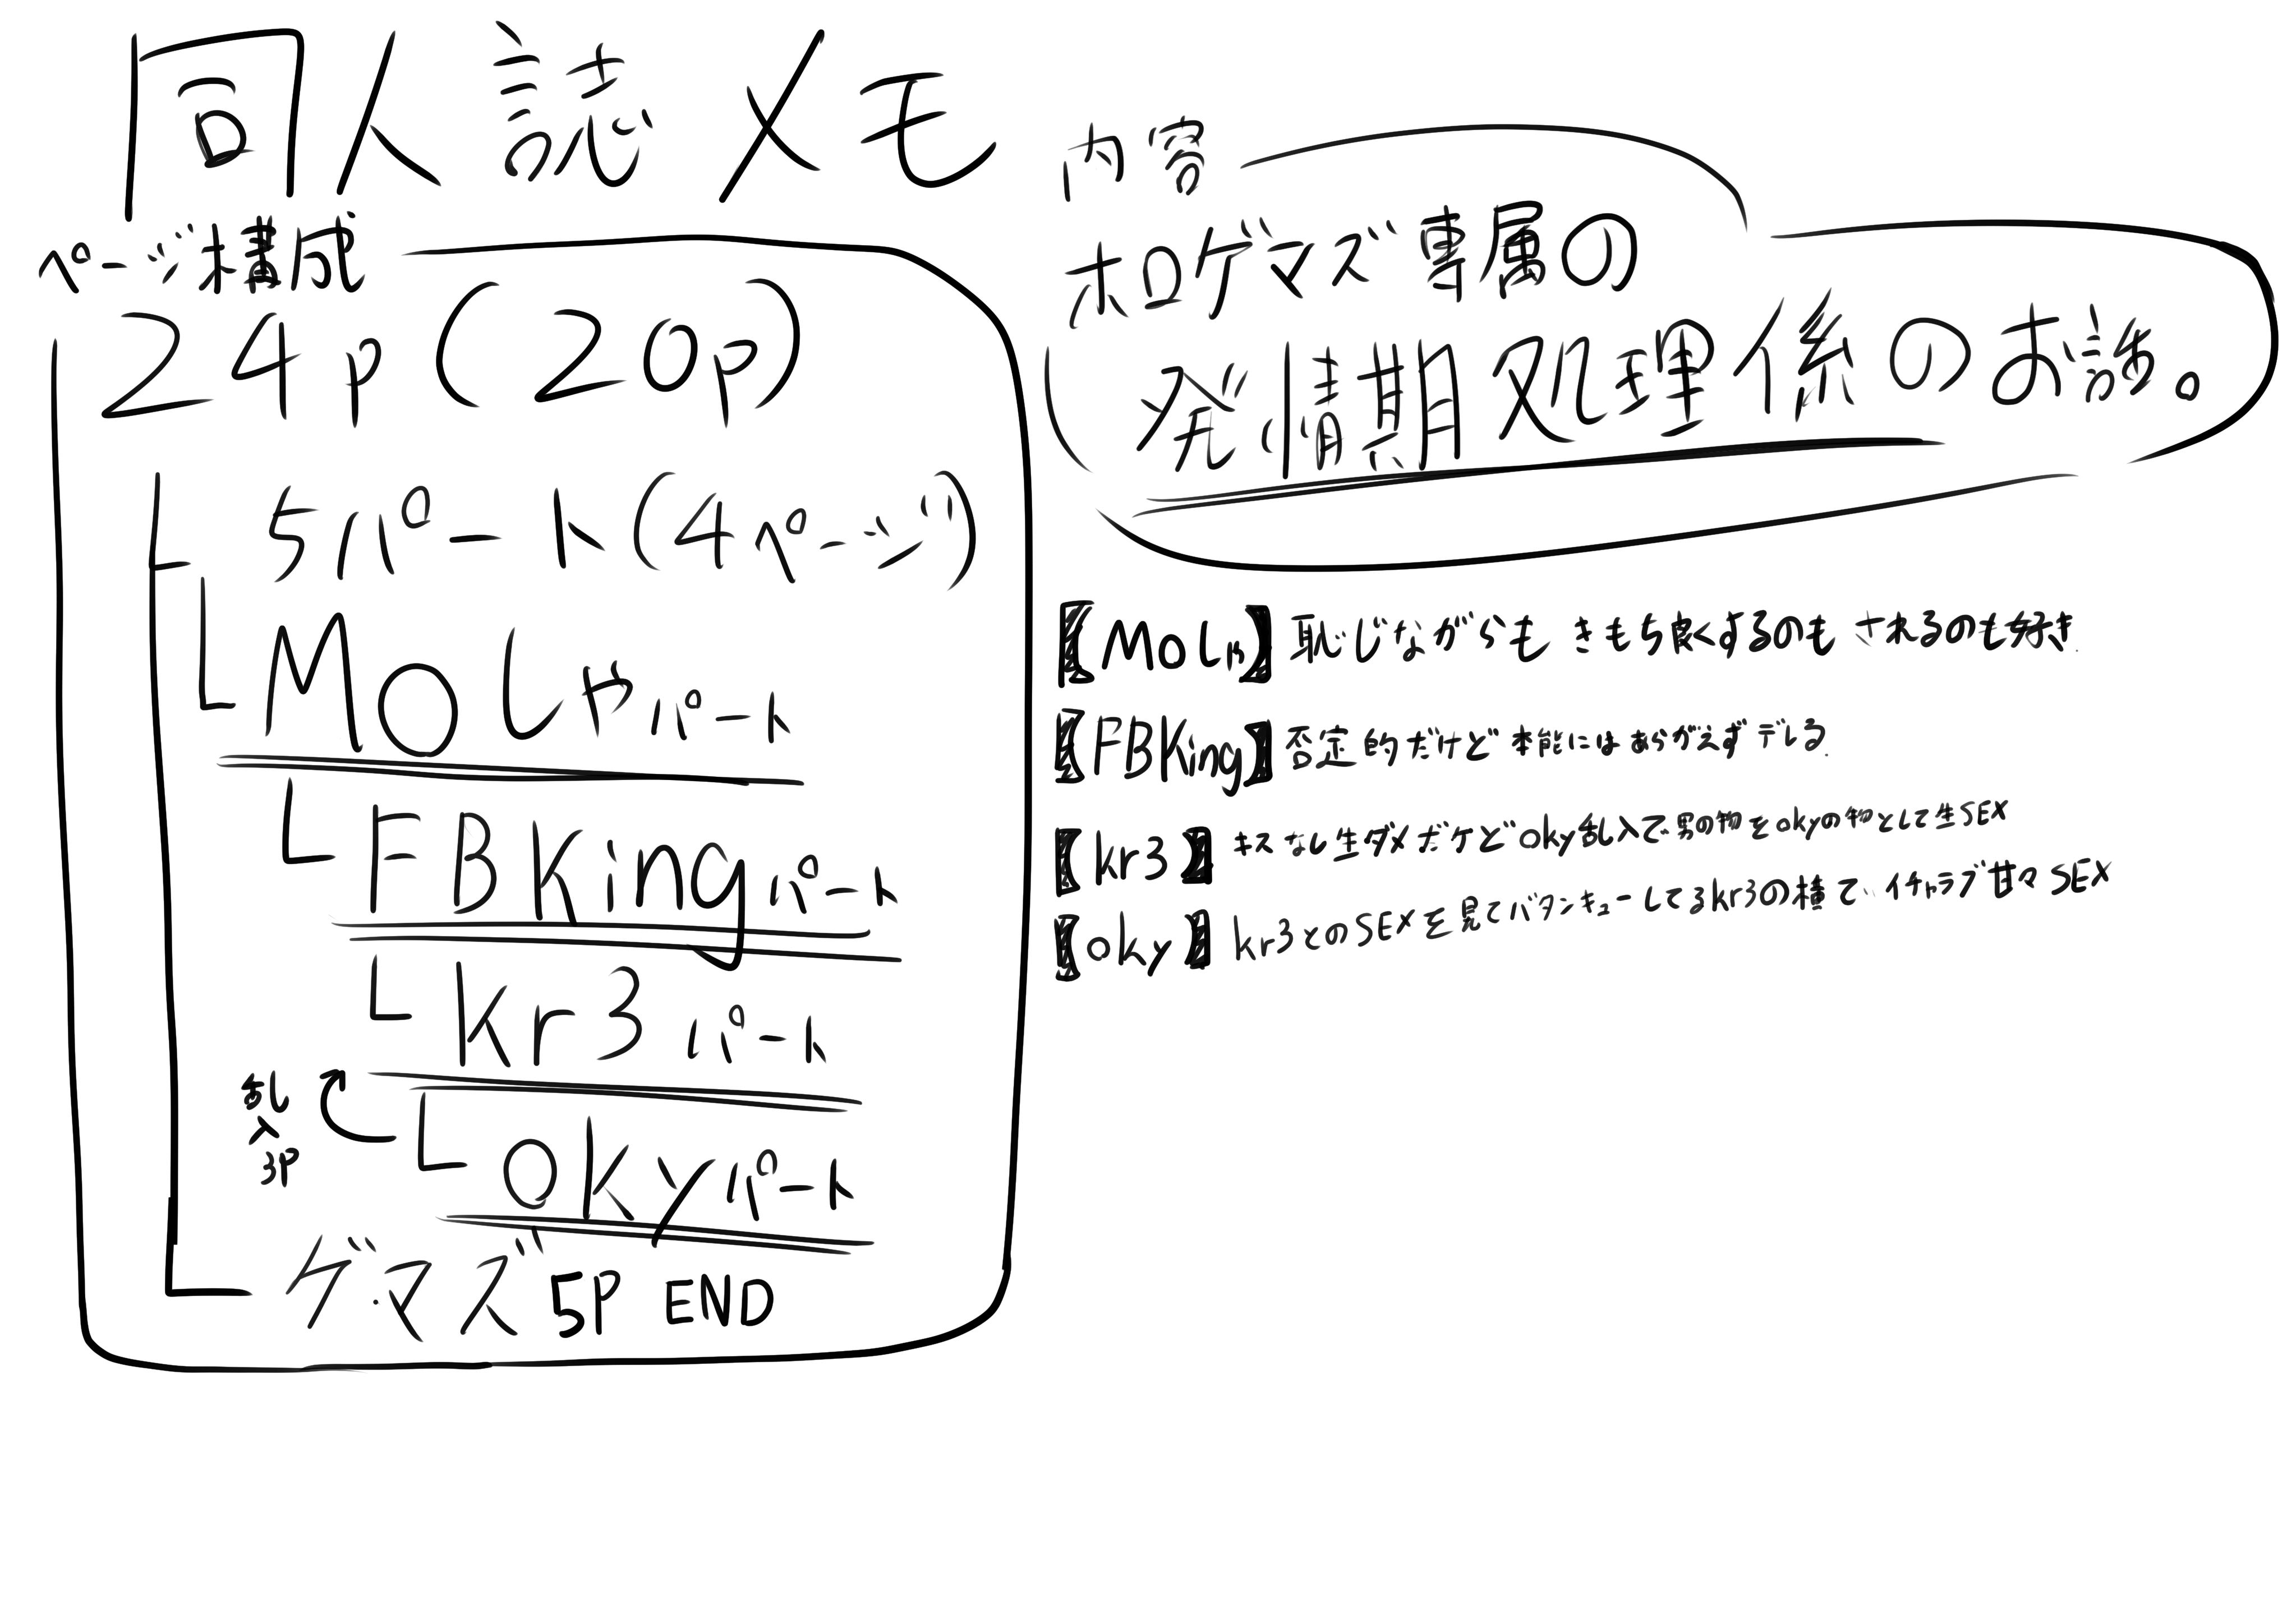 同人誌メモ
ページ構成
24p(20p)
5パート(4ページ)
MOしゃパート
FBKingパート
kr3パート
乱入3P
okyパート
ゲマズ5P END
内容
ホロゲマズ専属の
発情期処理係のお話。
【MOしゃ】恥じながらもきもち良くするのもされるのも好き
【FBKing】否定的だけど本能にはあらがえずデレる
【kr3】キスなし生ダメだけどoky乱入で男の物をokyの物として生SEX
【oky】kr3とのSEXを見てバタンキューしてるkr3の横で、イチャラブ甘々SEX